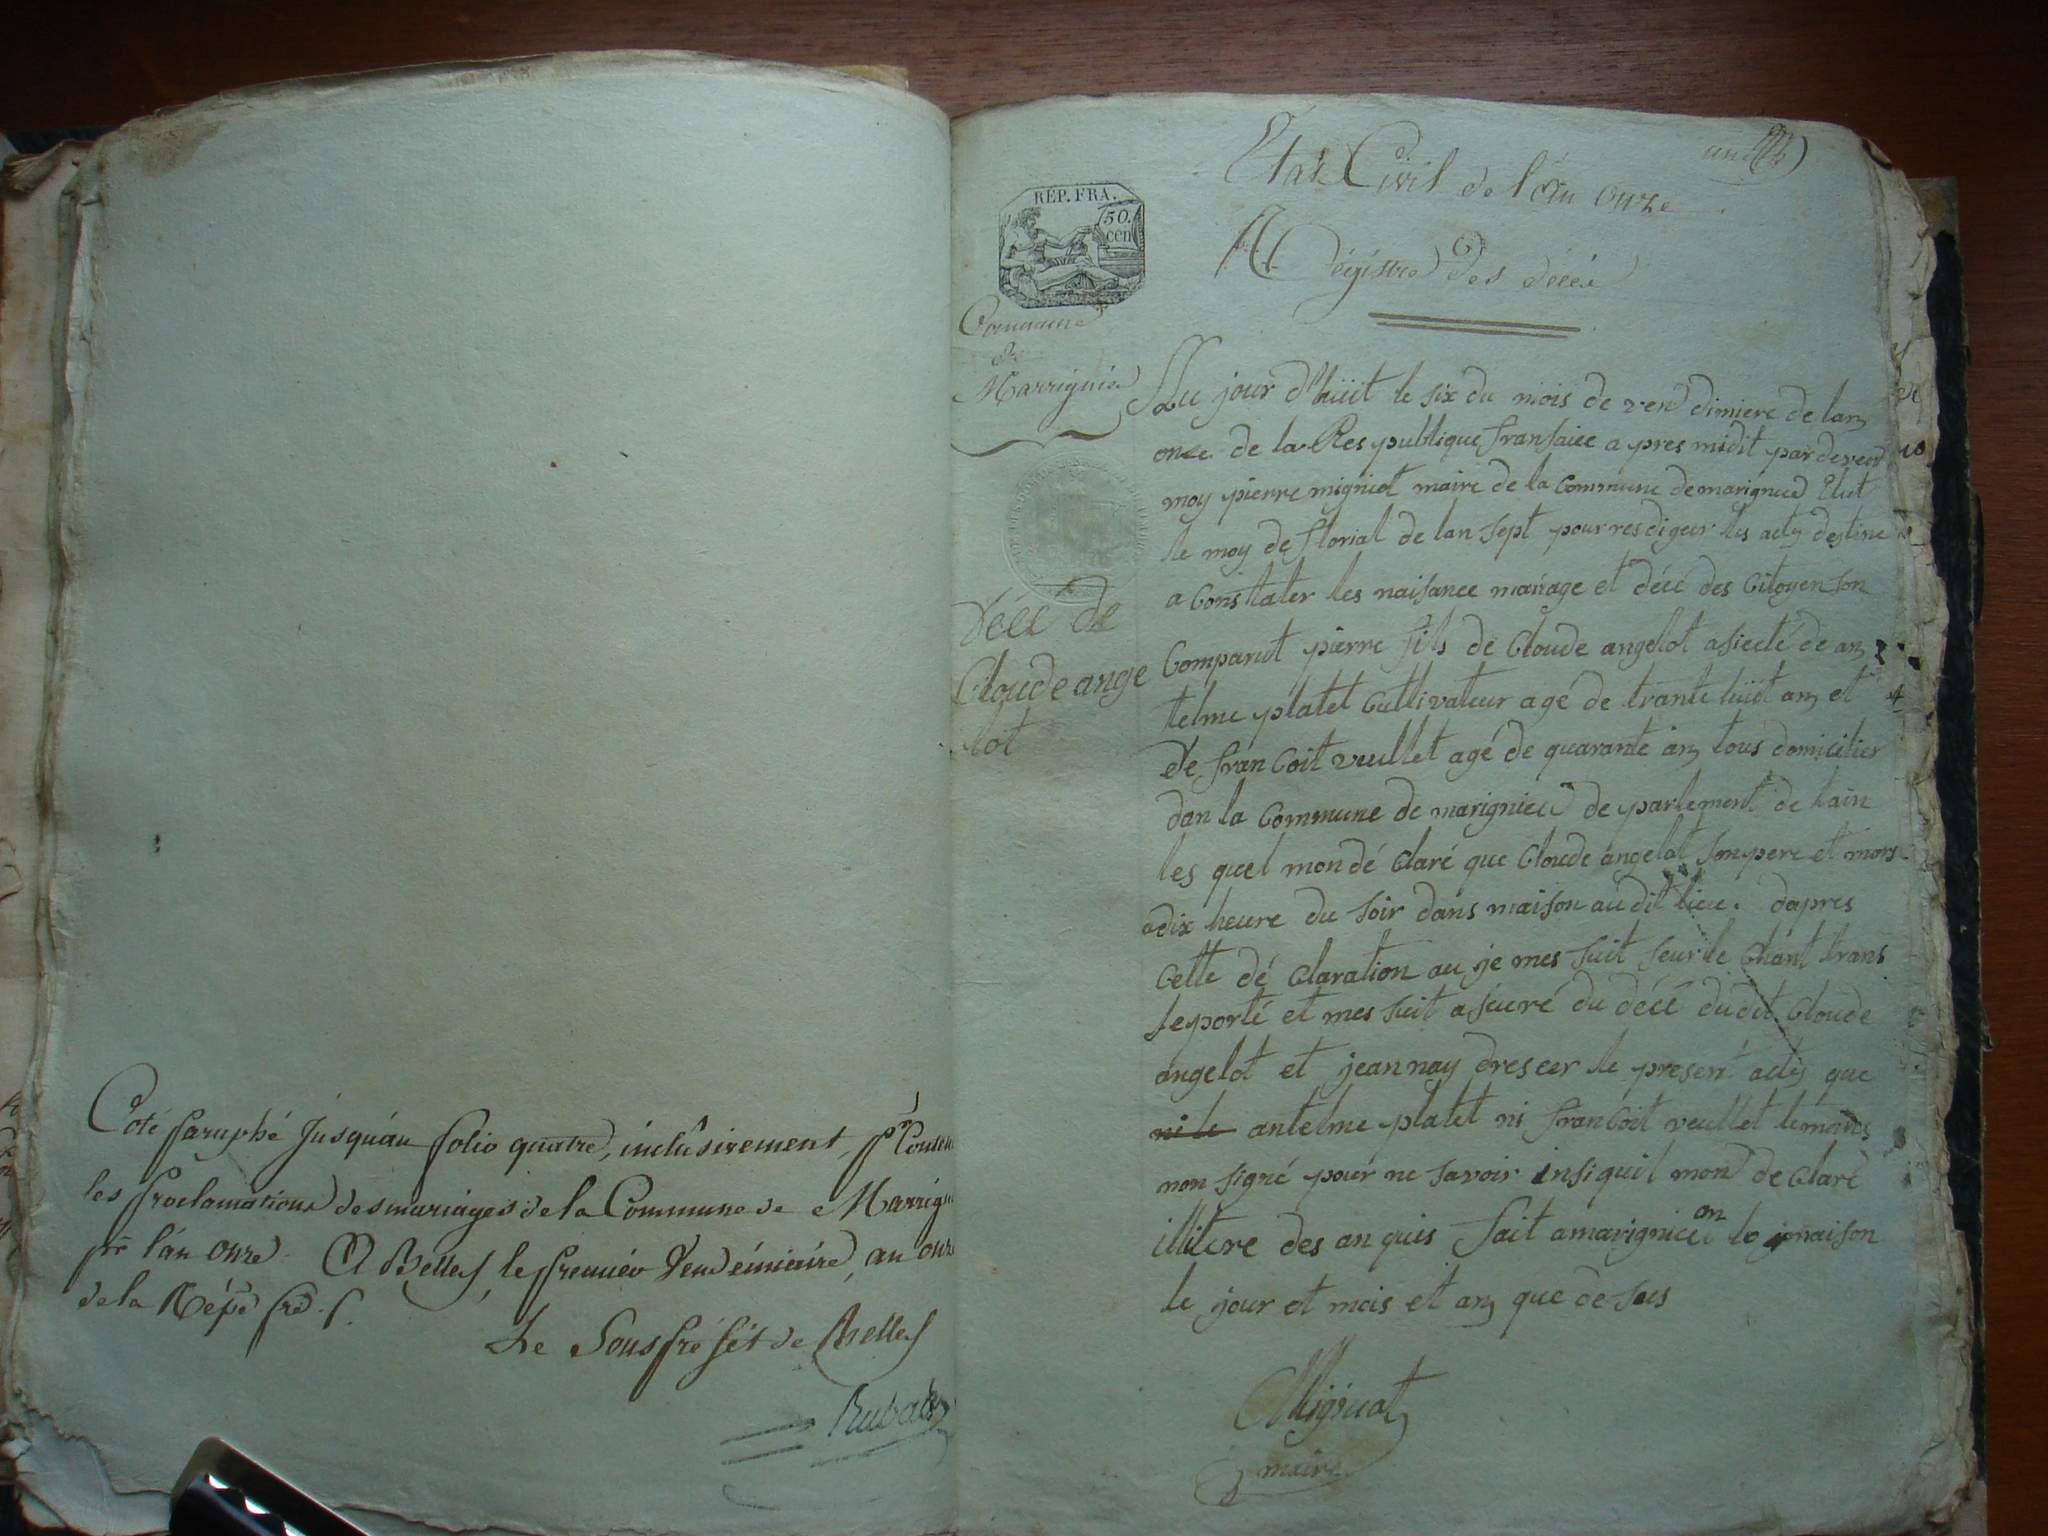 Coté paraphé jusqu'au folio quatre, inclusivement, pr
les proclamations des mariages de la Commune de Marrign
pr l'an onze A Belley le premier Vendémiaire, an onze
de la Répe fre
Le Sous préfét de Belley
Rubat
Etat Civil de l'An Onze
Régistre des décés
REP. FRA.
50.
cen
Commune
de
Marrignieu
Décé de
Cloude ange
lot
Au jour d'huit le six du mois de vendimiere de lan
once de la Respublique fransaice a pres midit par deven
moy pierre migniot maire de la Commune de marignieu Elut
le moy de florial de lan sept pour resdiger les acts destine
a Constater les naisance mariage et décé des Citoyen son
Comparut pierre fils de Cloude angelot asiecté de an
telme platet Cultivateur age de trante huit an et
de francoit veullet agé de quarante an tous domicilier
dan la Commune de marignieu de parlement de lain
les quel mon dé Claré que Cloude angelot son pere et mors
a dix heure du soir dans maison au dit lieu. dapres
Cette dé Claration au je mes suit seur le Chant trans
seporté et mes suit aseuré du décé dudit Cloude
angelot et jean nay dreseer le present acts que
ni le antelme platet ni francoit veullet
non signé pour ne savoir insi quil mon de Claré
illitere des an quis fait a marignieu an lo maison
le jour et mois et an que de sus
Migniot
maire